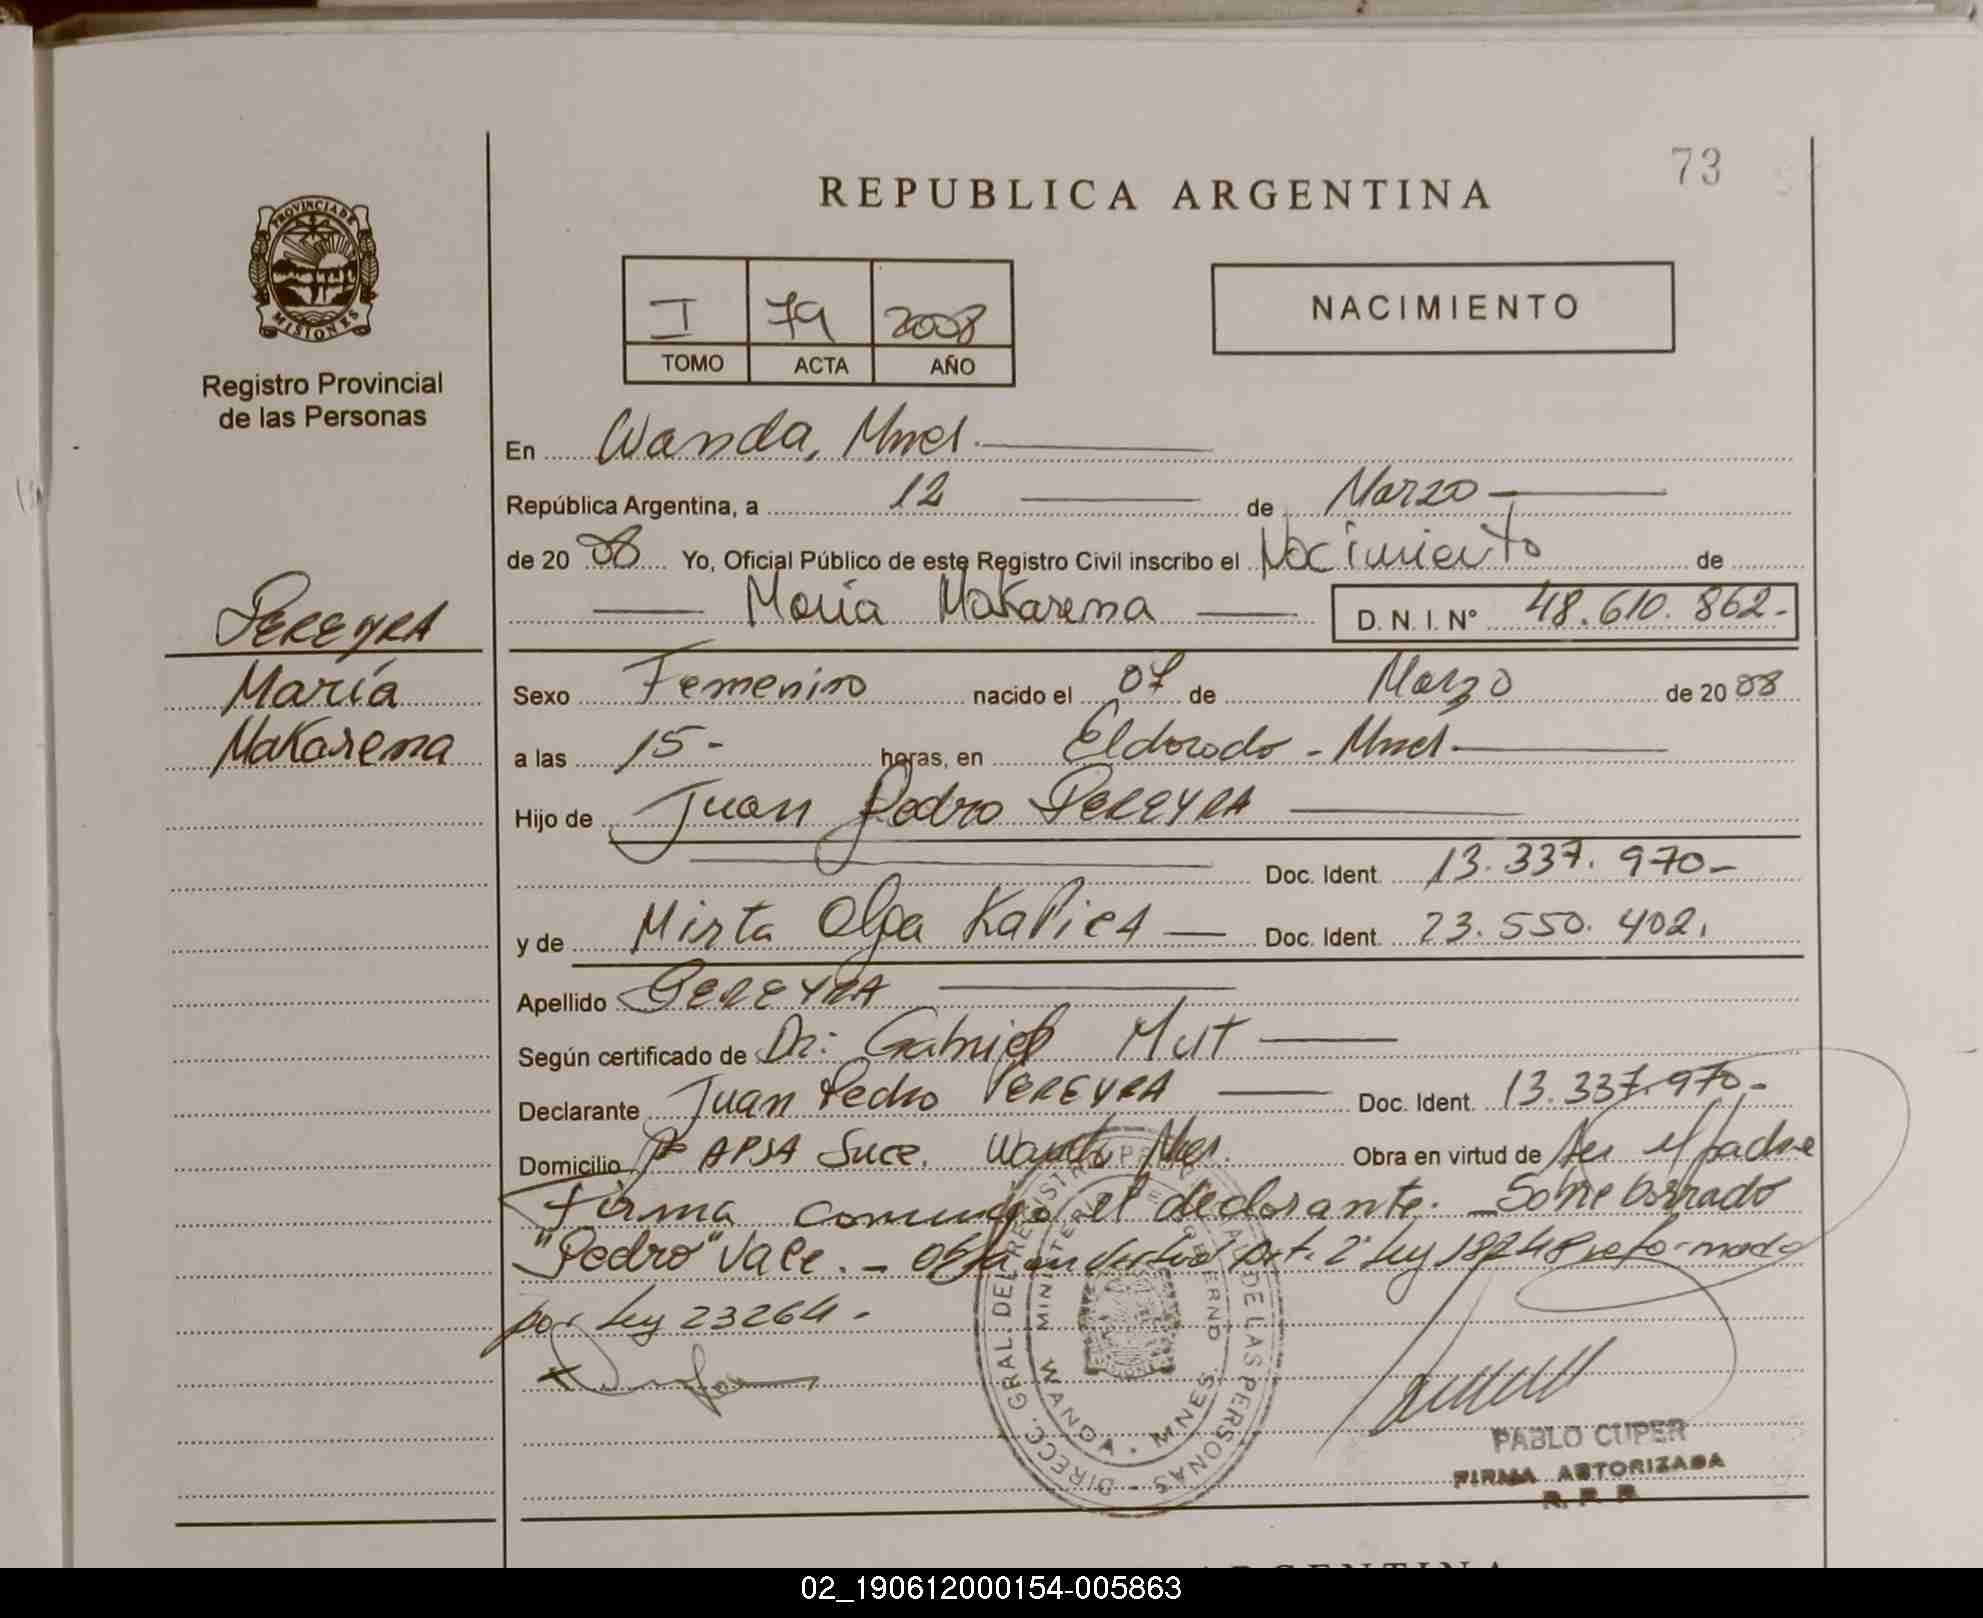 73
REPUBLICA ARGENTINA
PROVINCIA DE
MISIONES
Registro Provincial
de las Personas
I 79 2008
TOMO ACTA AÑO
NACIMIENTO
En Wanda, Mnes.
República Argentina, a 12 de Marzo
de 20 08 Yo, Oficial Público de este Registro Civil inscribo el Nacimiento de
María Makarena D. N. I. Nº 48.610.862-
PEREYRA
María
Makarena
Sexo Femenino nacido el 07 de Marzo de 20 08
a las 15- horas, en Eldorado - Mnes.
Hijo de Juan Pedro PEREYRA
Doc. Ident. 13.337.970-
y de Mirta Olga Doc. Ident. 23.550.402.
Apellido PEREYRA
Según certificado de Dr: Gabriel Mut
Declarante Juan Pedro PEREYRA Doc. Ident. 13.337.970-
Domicilio APSA Suce. Wanda Mnes. Obra en virtud de Ser el padre
Firma conmigo el declarante. Sobre borrado
"Pedro" Vale. - Obra en virtud Art. 2º Ley 18248 reformado
por Ley 23264-
DIRECC. GRAL DEL REGISTRO PROVINCIAL DE LAS PERSONAS
MINISTERIO DE GOBIERNO
WANDA - MNES.
PABLO CUPER
FIRMA AUTORIZADA
R. P. P.
ARGENTINA
02_190612000154-005863